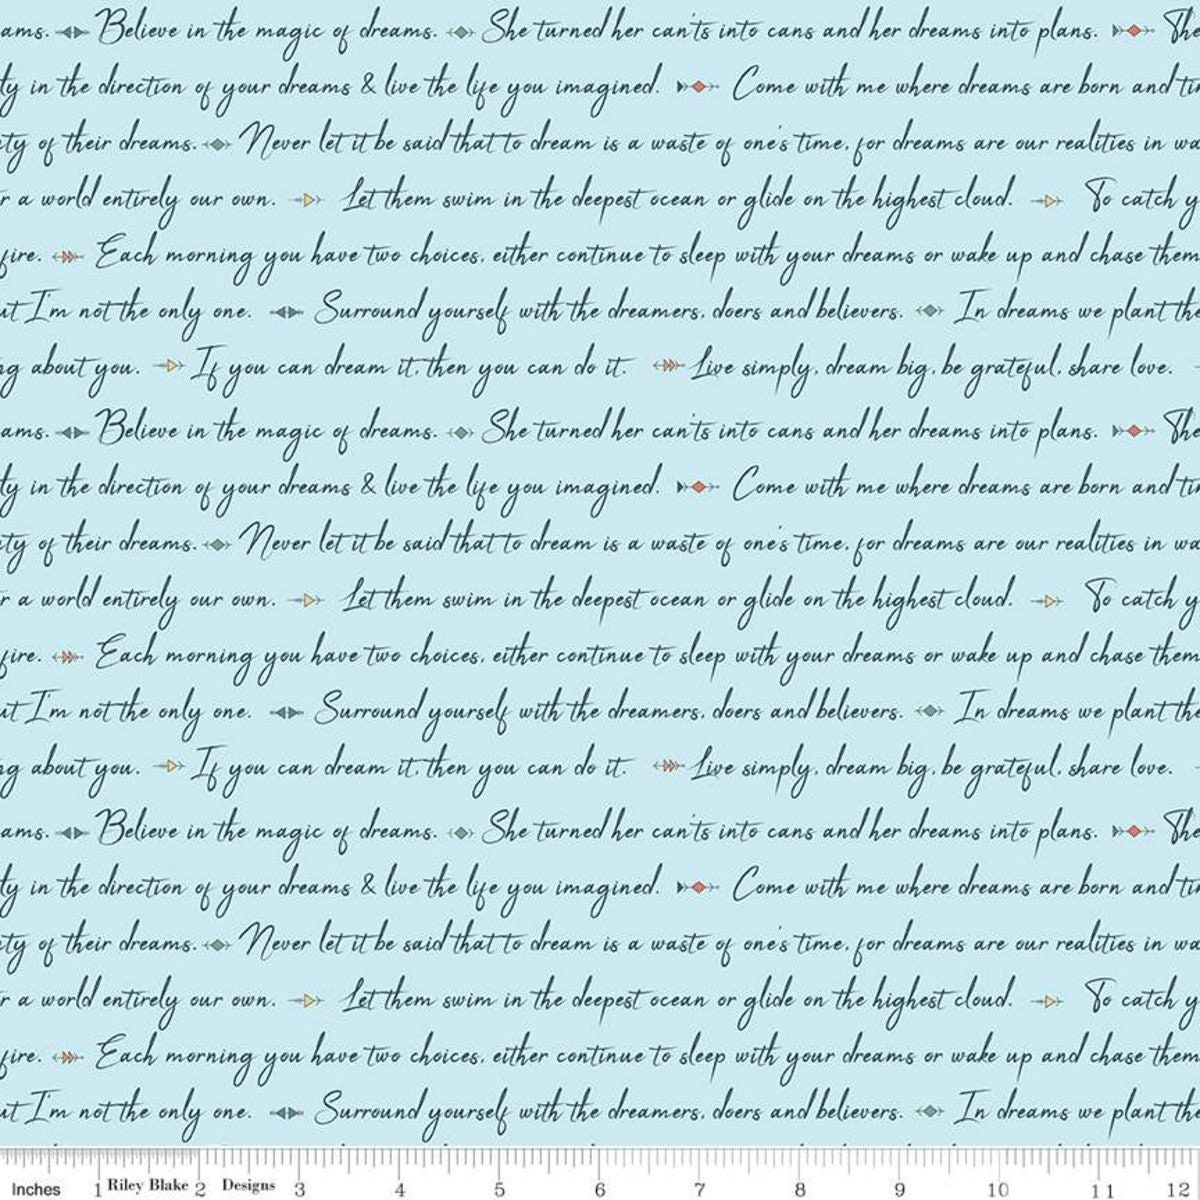 ams. Believe in the magic of dreams. She turned her can'ts into cans and her dreams into plans. The
ty in the direction of your dreams & live the life you imagined. Come with me where dreams are born and tim
ty of their dreams. Never let it be said that to dream is a waste of one's time, for dreams are our realities in wa
r a world entirely our own. Let them swim in the deepest ocean or glide on the highest cloud. To catch y
fire. Each morning you have two choices, either continue to sleep with your dreams or wake up and chase them
ut I'm not the only one. Surround yourself with the dreamers, doers and believers. In dreams we plant the
ng about you. If you can dream it, then you can do it. Live simply, dream big, be grateful, share love.
ams. Believe in the magic of dreams. She turned her can'ts into cans and her dreams into plans. The
ty in the direction of your dreams & live the life you imagined. Come with me where dreams are born and tim
ty of their dreams. Never let it be said that to dream is a waste of one's time, for dreams are our realities in wa
r a world entirely our own. Let them swim in the deepest ocean or glide on the highest cloud. To catch y
fire. Each morning you have two choices, either continue to sleep with your dreams or wake up and chase them
ut I'm not the only one. Surround yourself with the dreamers, doers and believers. In dreams we plant the
ng about you. If you can dream it, then you can do it. Live simply, dream big, be grateful, share love.
ams. Believe in the magic of dreams. She turned her can'ts into cans and her dreams into plans. The
ty in the direction of your dreams & live the life you imagined. Come with me where dreams are born and tim
ty of their dreams. Never let it be said that to dream is a waste of one's time, for dreams are our realities in wa
r a world entirely our own. Let them swim in the deepest ocean or glide on the highest cloud. To catch y
fire. Each morning you have two choices, either continue to sleep with your dreams or wake up and chase them
ut I'm not the only one. Surround yourself with the dreamers, doers and believers. In dreams we plant the
Inches 1 Riley Blake 2 Designs 3 4 5 6 7 8 9 10 11 12